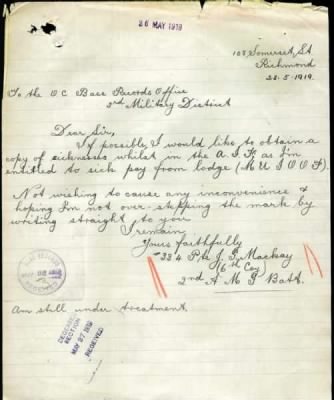 26 MAY 1919
108 Somerset St
Richmond
22.5.1919.
To the O C Base Records Office
3rd Military District
Dear Sir,
If possible, I would like to obtain a
copy of sicknesses whilst in the A.I.F, as I'm
entitled to sick pay from lodge (M U I O O F).
Not wishing to cause any inconvenience &
hoping I'm not over-stepping the mark by
writing straight to you
I remain
Yours Faithfully
334 Pte J. T. Mackay
6th Coy
2nd A M G Batt.
RECEIVED
Am still under treatment.
SECTION
MAY 27 1919
RECEIVED